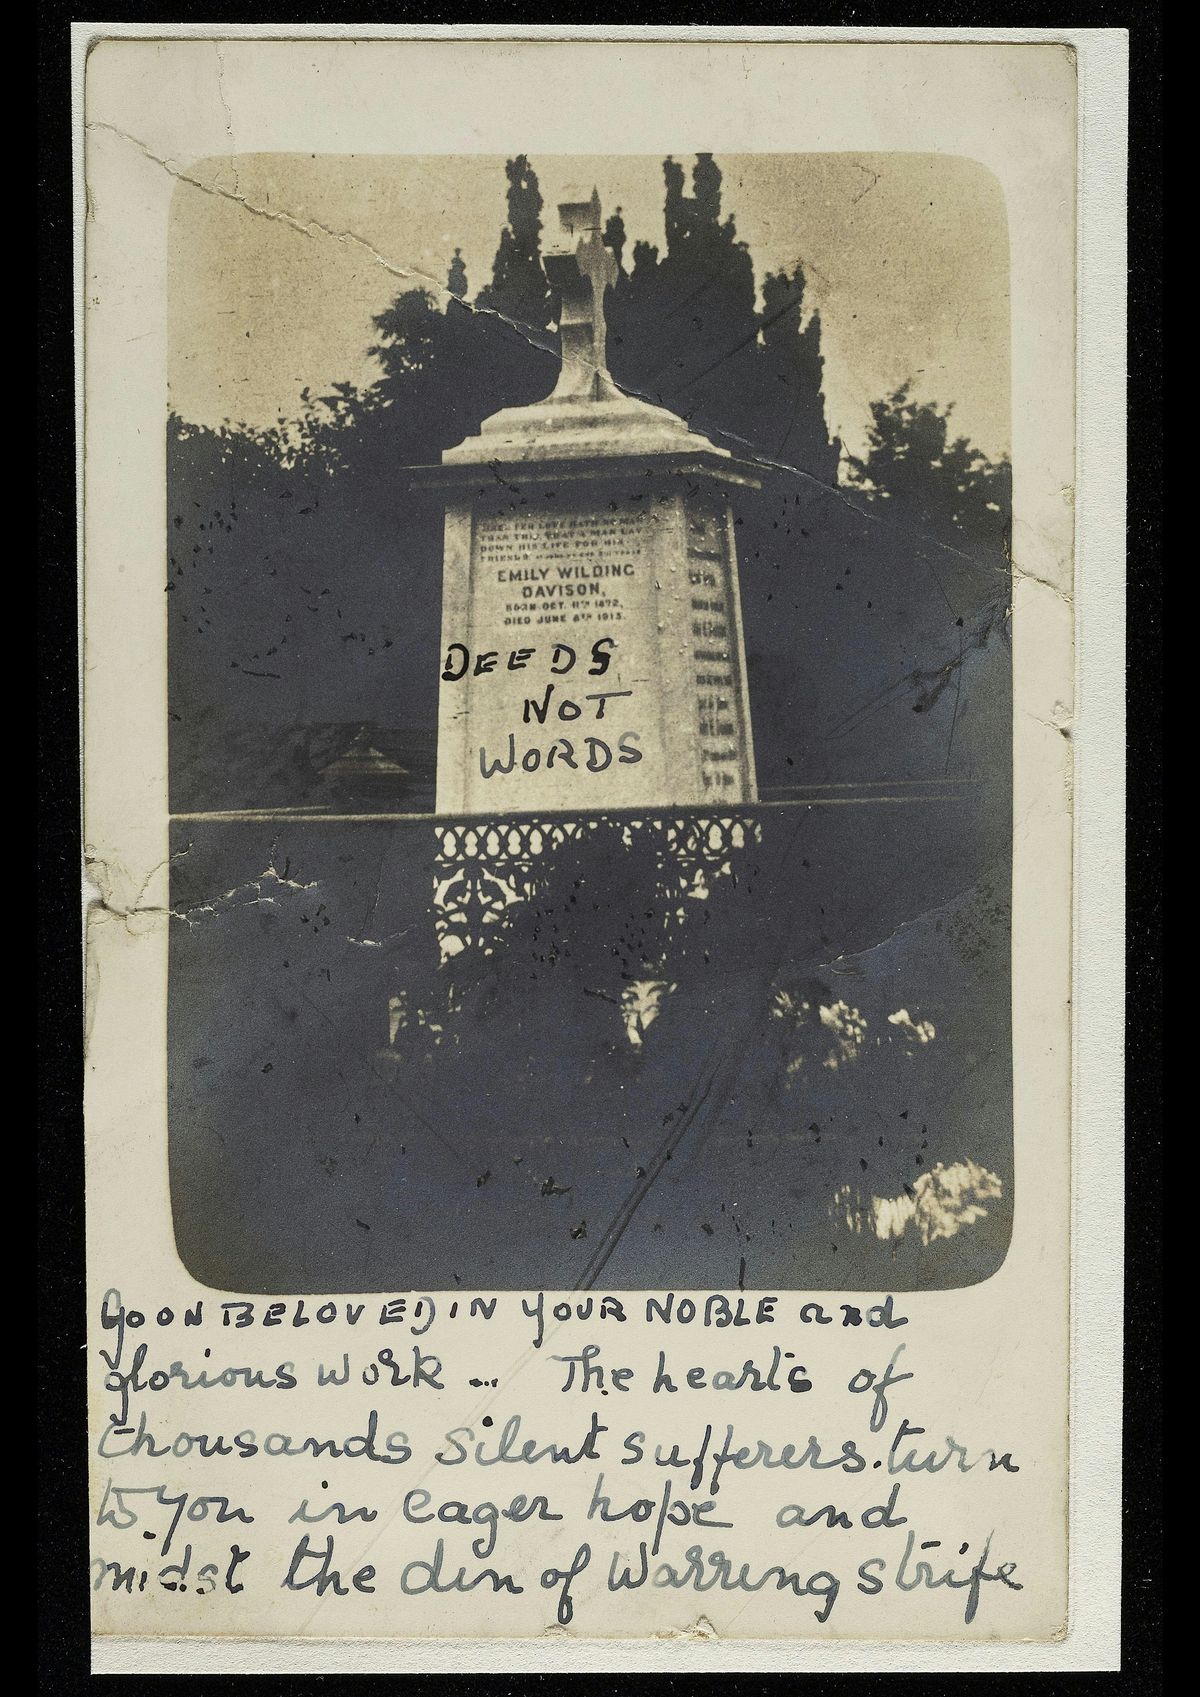 GREATER LOVE HATH NO MAN
THAN THIS, THAT A MAN LAY
DOWN HIS LIFE FOR HIS
FRIENDS
EMILY WILDING
DAVISON,
BORN OCT. 11TH 1872,
DIED JUNE 8TH 1913.
DEEDS
NOT
WORDS
GO ON BELOVED IN YOUR NOBLE and
glorious work ... The hearts of
thousands silent sufferers. turn
to you in eager hope and
midst the din of warring strife